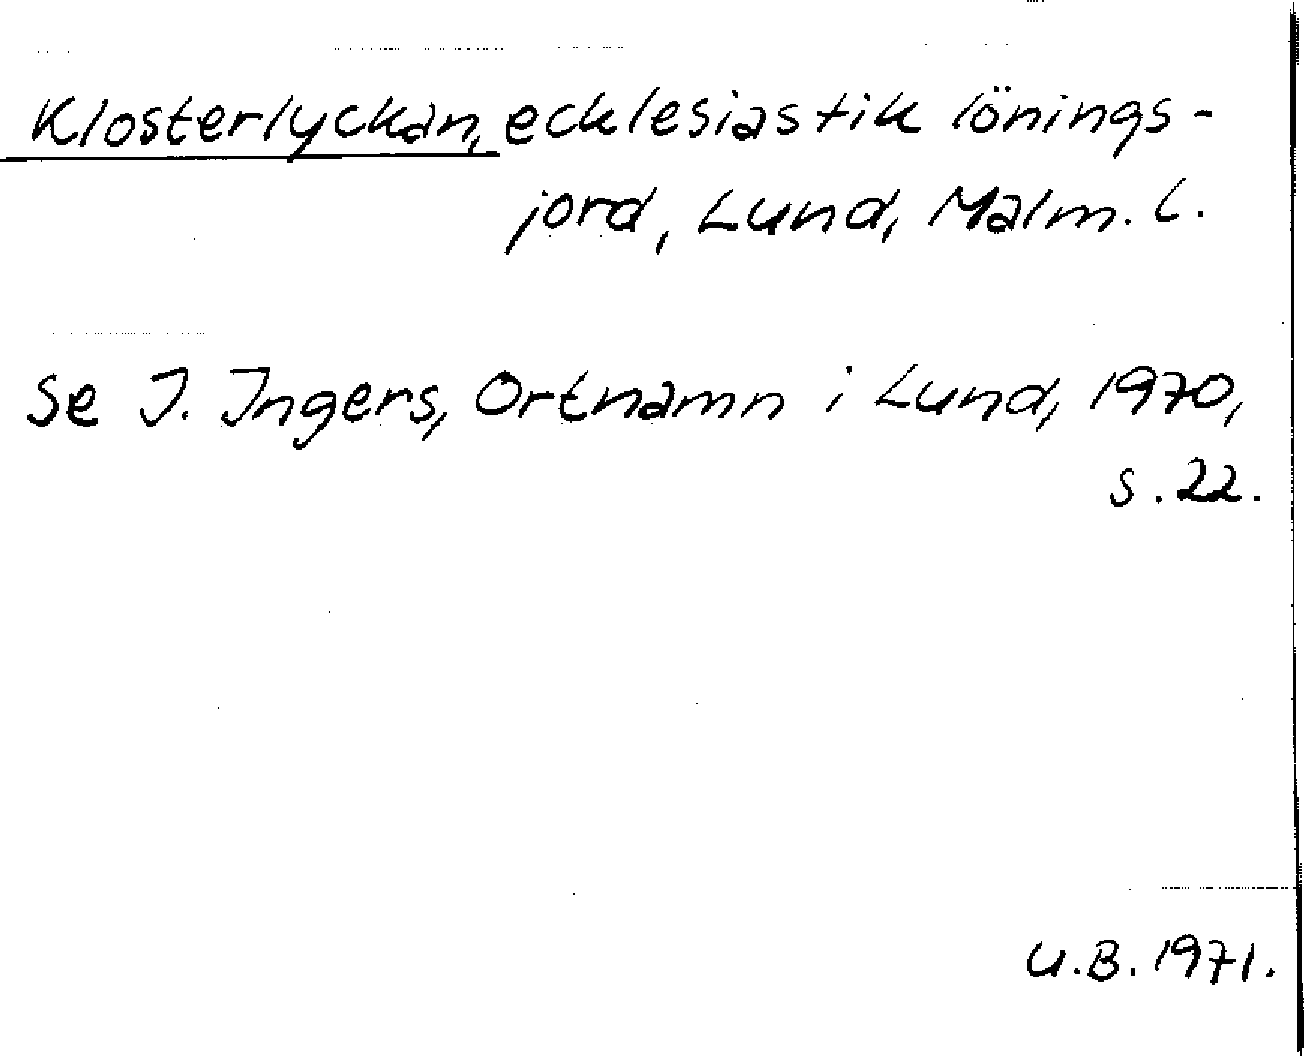 Klosterlyckan, ecklesiastik lönings-
jord, Lund, Malm. l.
Se I. Ingers, Ortnamn i Lund, 1970,
s. 22.
U.B. 1971.